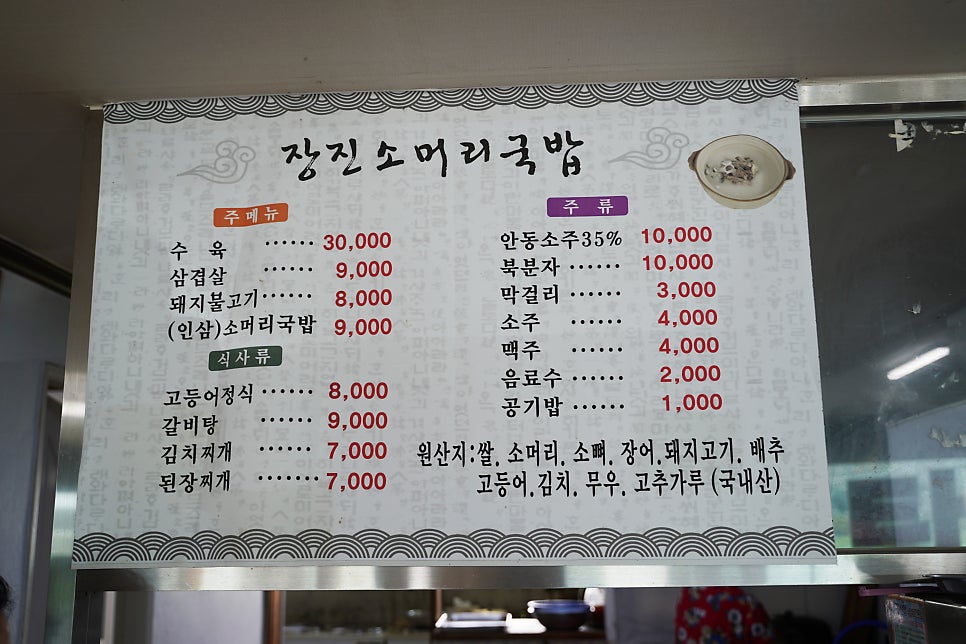 장진소머리국밥
주메뉴
수 육 ...... 30,000
삼겹살 ...... 9,000
돼지불고기 ...... 8,000
(인삼)소머리국밥 9,000
식사류
고등어정식 ...... 8,000
갈비탕 ...... 9,000
김치찌개 ...... 7,000
된장찌개 ....... 7,000
주 류
안동소주35% 10,000
북분자 ...... 10,000
막걸리 ...... 3,000
소주 ...... 4,000
맥주 ...... 4,000
음료수 ...... 2,000
공기밥 ...... 1,000
원산지:쌀, 소머리, 소뼈, 장어,돼지고기, 배추
고등어,김치, 무우, 고추가루 (국내산)